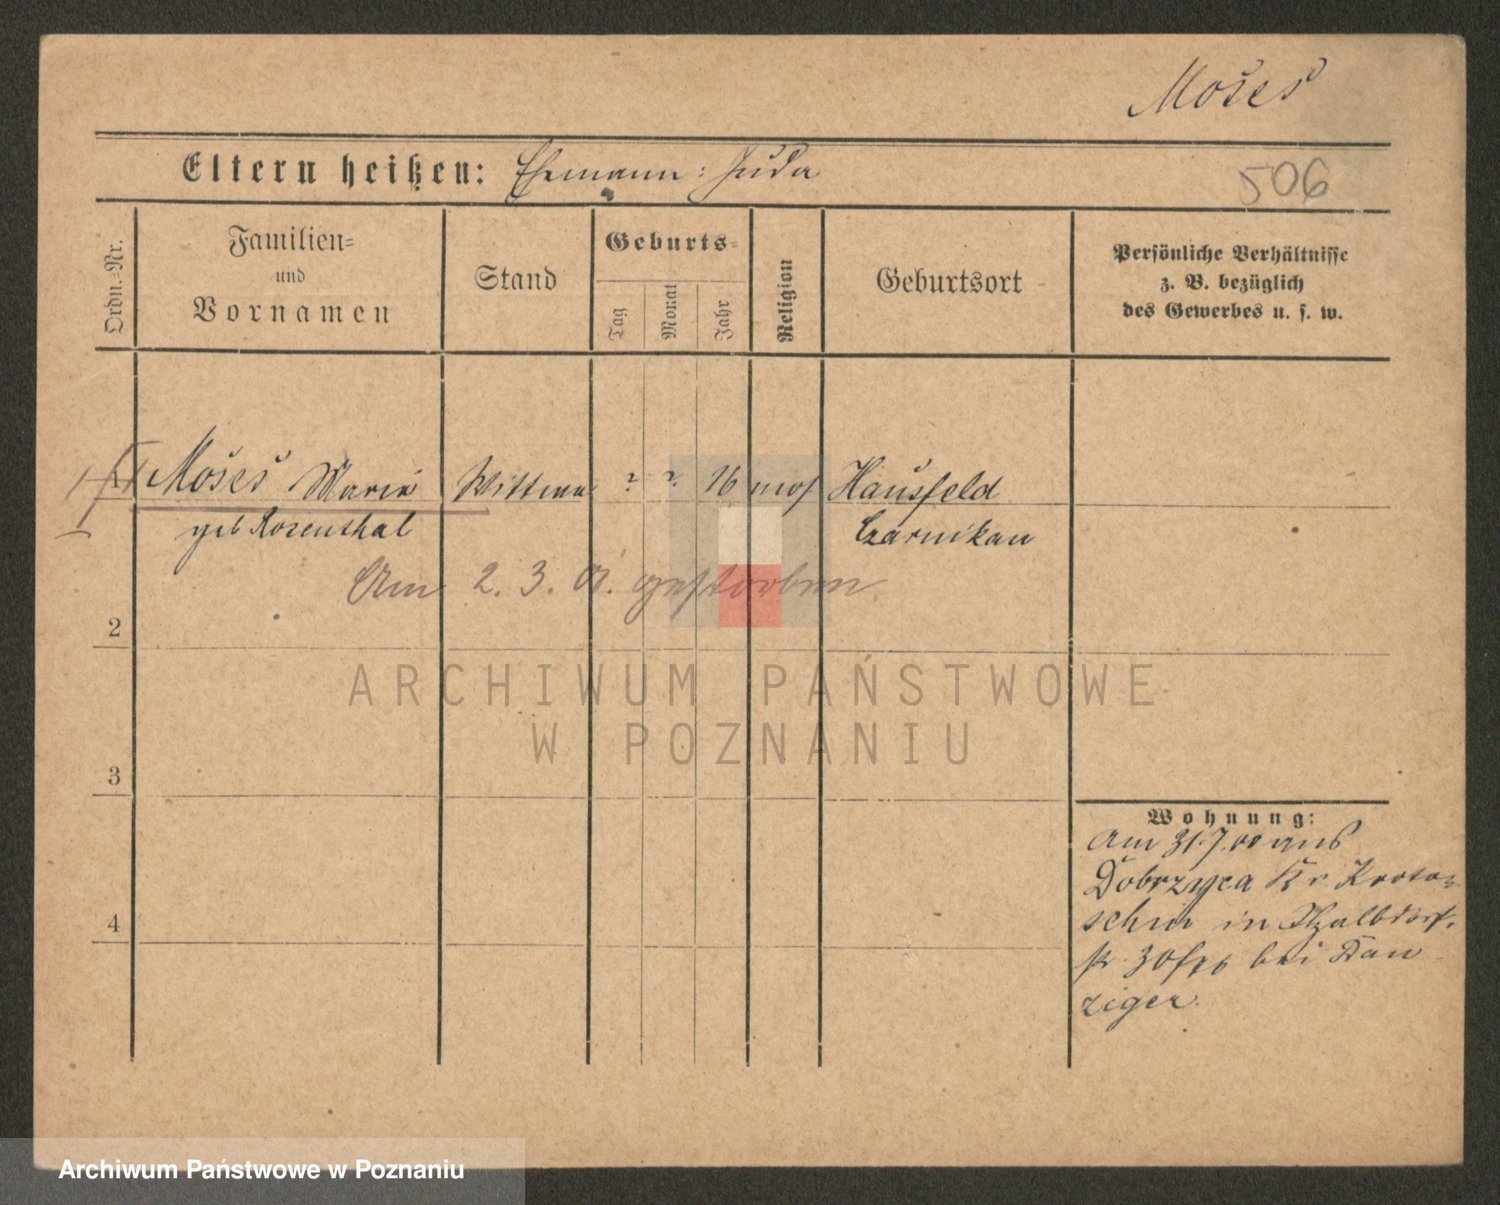 Moses
Eltern heißen: Ehemann: Juda
506
Ordn.-Nr.
Familien-
und
Vornamen
Stand
Geburts-
Tag
Monat
Jahr
Religion
Geburtsort
Persönliche Verhältnisse
z. B. bezüglich
des Gewerbes u. s. w.
Moses Marie Wittwe ? ? 16 mos Hausfeld
geb Rosenthal Czarnikau
Am 2. 3. 01. gestorben.
2
ARCHIWUM PAŃSTWOWE
W POZNANIU
3
Wohnung:
Am 31.7.00 aus
Dobrzyca Kr. Kroto-
schin in
bei Dan-
ziger.
4
Archiwum Państwowe w Poznaniu